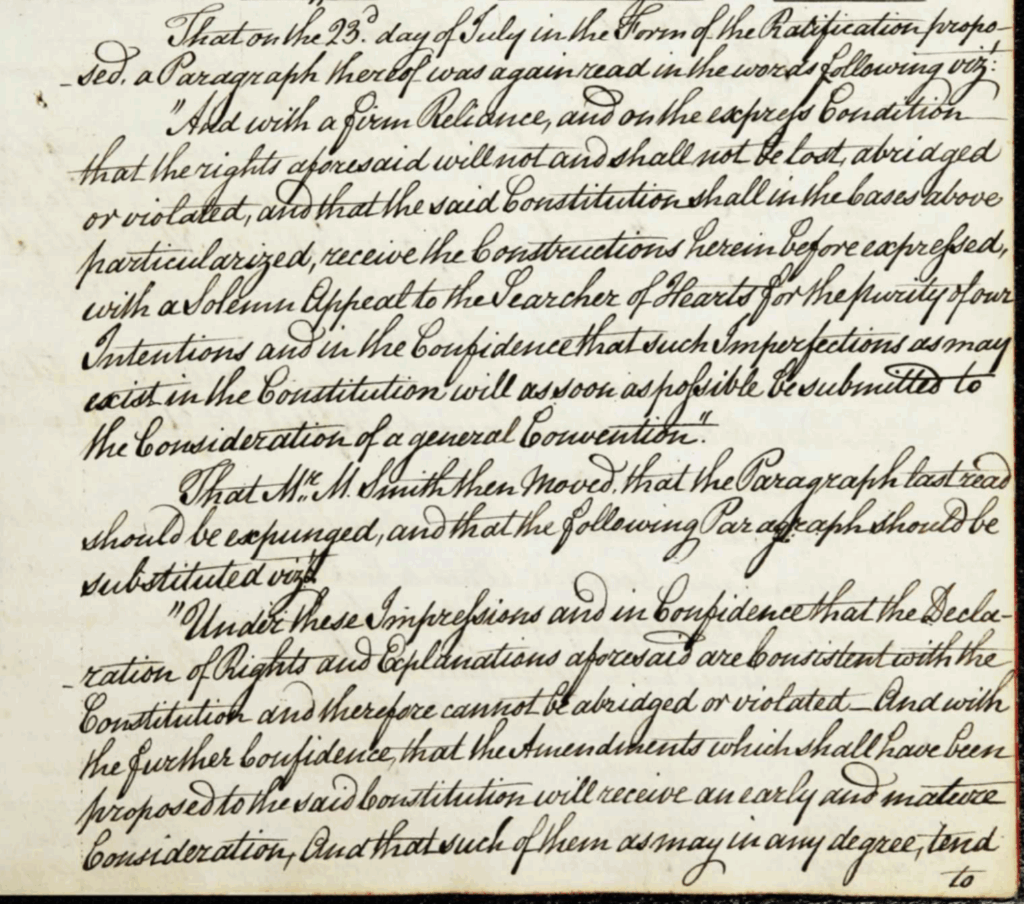 That on the 23d. day of July in the Form of the Ratification propo-
-sed. a Paragraph thereof was again read in the words following viz:t
"And with a firm Reliance, and on the express Condition
that the rights aforesaid will not and shall not be lost, abridged
or violated, and that the said Constitution shall in the Cases above
particularized, receive the Constructions herein before expressed,
with a Solemn Appeal to the Searcher of Hearts for the purity of our
Intentions and in the Confidence that such Imperfections as may
exist in the Constitution will as soon as possible be submitted to
the Consideration of a general Convention".
That Mr. M. Smith then moved. that the Paragraph last read
should be expunged, and that the following Paragraph should be
substituted vizt.
"Under these Impressions and in Confidence that the Decla-
-ration of Rights and Explanations aforesaid are Consistent with the
Constitution and therefore cannot be abridged or violated — And with
the further Confidence, that the Amendments which shall have been
proposed to the said Constitution will receive an early and mature
Consideration, And that such of them as may in any degree, tend
to